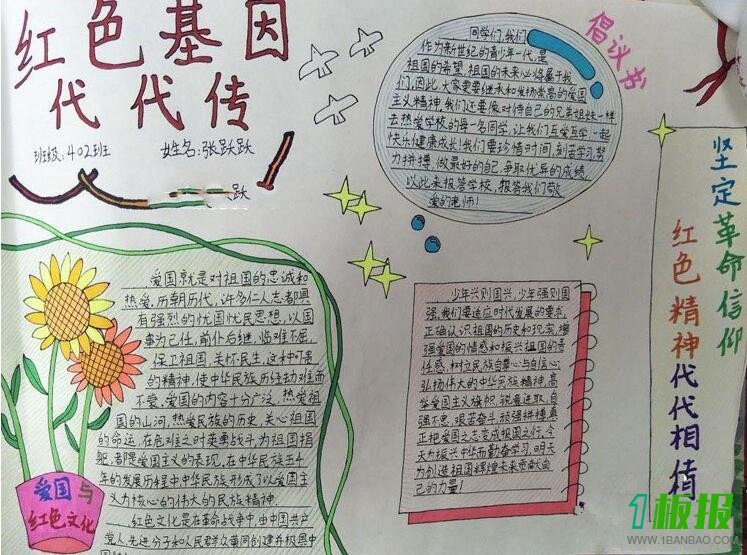 红色基因
代代传
班级:402班 姓名:张跃跃
跃
爱国就是对祖国的忠诚和
热爱,历朝历代,许多仁人志士都具
有强烈的忧国忧民思想,以国
事为己任,前仆后继,临难不屈,
保卫祖国,关怀民生,这种可贵
的精神,使中华民族历经劫难而
不衰。爱国的内容十分广泛,热爱祖
国的山河,热爱民族的历史,关心祖国
的命运,在危难之时英勇战斗,为祖国捐
躯,都是爱国主义的表现,在中华民族五千
年的发展历程中中华民族形成了以爱国主
义为核心的伟大的民族精神。
红色文化是在革命战争中,由中国共产
党人、先进分子和人民群众共同创建并极具中
爱国与
红色文化
倡议书
同学们,我们
作为新世纪的青少年一代,是
祖国的希望,祖国的未来必将属于我
们,因此,大家更要继承和发扬崇高的爱国
主义精神,我们还要像对待自己的兄弟姐妹一样
去热爱学校的每一名同学,让我们互爱互学,一起
快乐健康成长!我们要珍惜时间,刻苦学习,努
力拼搏,做最好的自己,争取优异的成绩,
以此来报答学校,报答我们敬
爱的老师!
少年兴则国兴,少年强则国
强,我们要适应时代发展的要求,
正确认识祖国的历史和现实,增
强爱国的情感和振兴祖国的责
任感,树立民族自尊心与自信心;
弘扬伟大的中华民族精神,高
举爱国主义旗帜,锐意进取,自
强不息,艰苦奋斗,顽强拼搏,真
正把爱国之志变成报国之行。今
天为振兴中华而勤奋学习,明天
为创造祖国辉煌未来贡献自
己的力量!
坚定革命信仰
红色精神代代相传
1板报
WWW.1BANBAO.COM